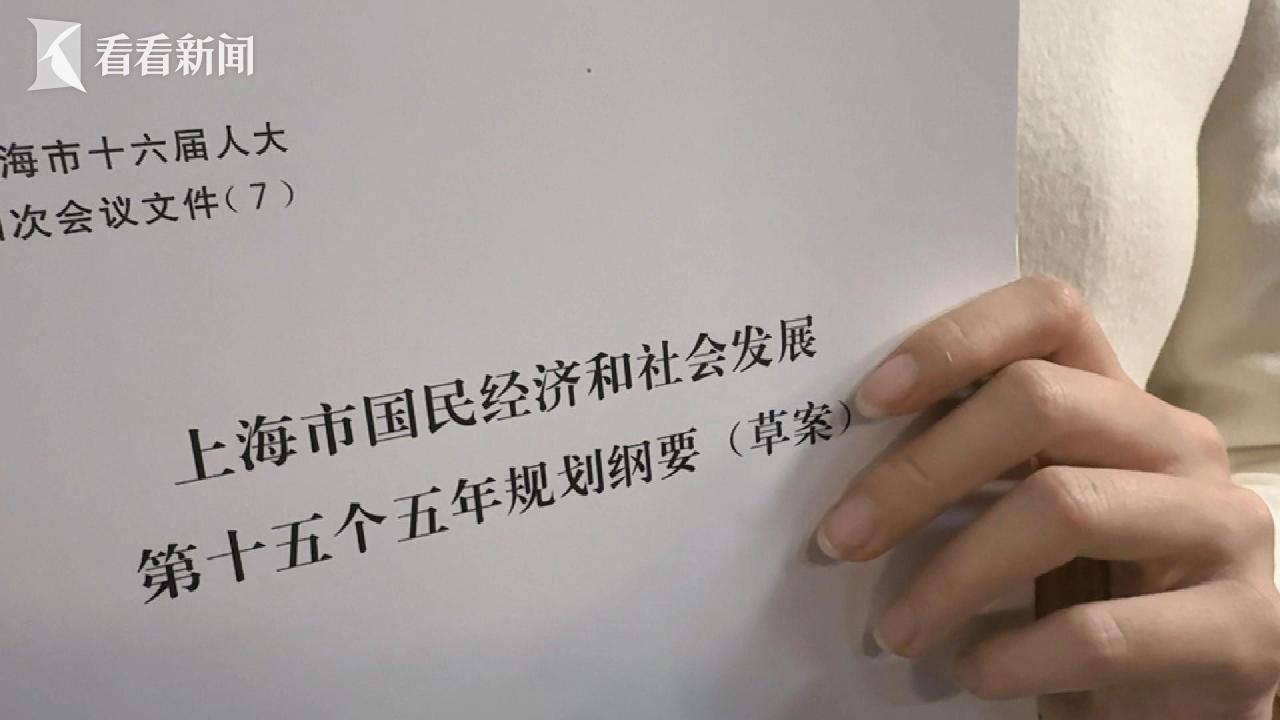 看看新闻
海市十六届人大
次会议文件(7)
上海市国民经济和社会发展
第十五个五年规划纲要（草案）